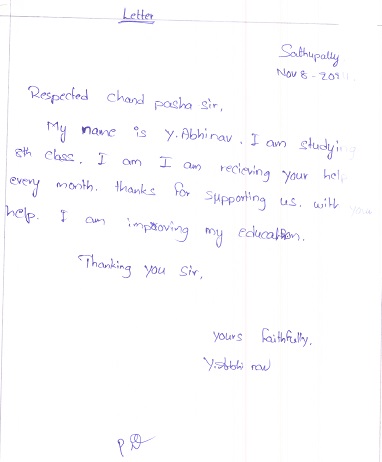 Letter
Sathupally
Nov 8 - 201
Respected chand pasha sir,
My name is Y. Abhinav. I am studying
8th class. I am I am recieving your help
every month. thanks for supporting us. with your
help. I am improving my education.
Thanking you Sir,
yours faithfully,
Y. Abhi nav